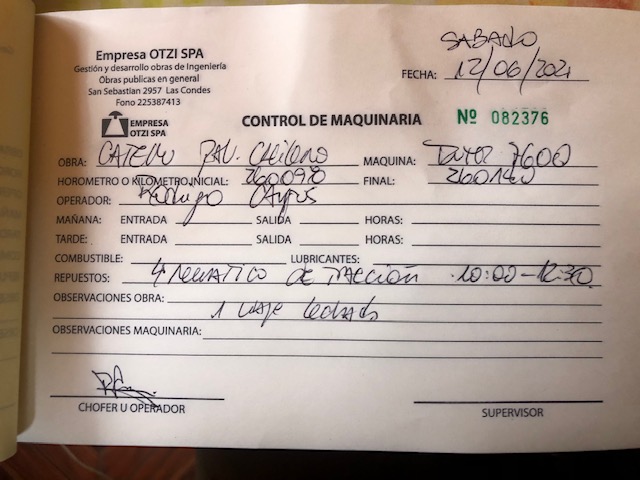 Empresa OTZI SPA
Gestión y desarrollo obras de Ingeniería
Obras publicas en general
San Sebastian 2957 Las Condes
Fono 225387413
SABADO
FECHA: 12/06/2021
EMPRESA
OTZI SPA
CONTROL DE MAQUINARIA Nº 082376
OBRA: CATEM PAV. Chileno MAQUINA: 7600
HOROMETRO O KILOMETROJNICIAL: 260098 FINAL: 260140
OPERADOR:
MAÑANA: ENTRADA SALIDA HORAS:
TARDE: ENTRADA SALIDA HORAS:
COMBUSTIBLE: LUBRICANTES:
REPUESTOS: 4 NEUMATICO DE TRACCION .10:00-12:30.
OBSERVACIONES OBRA:
1 VIAJE
OBSERVACIONES MAQUINARIA:
CHOFER U OPERADOR SUPERVISOR